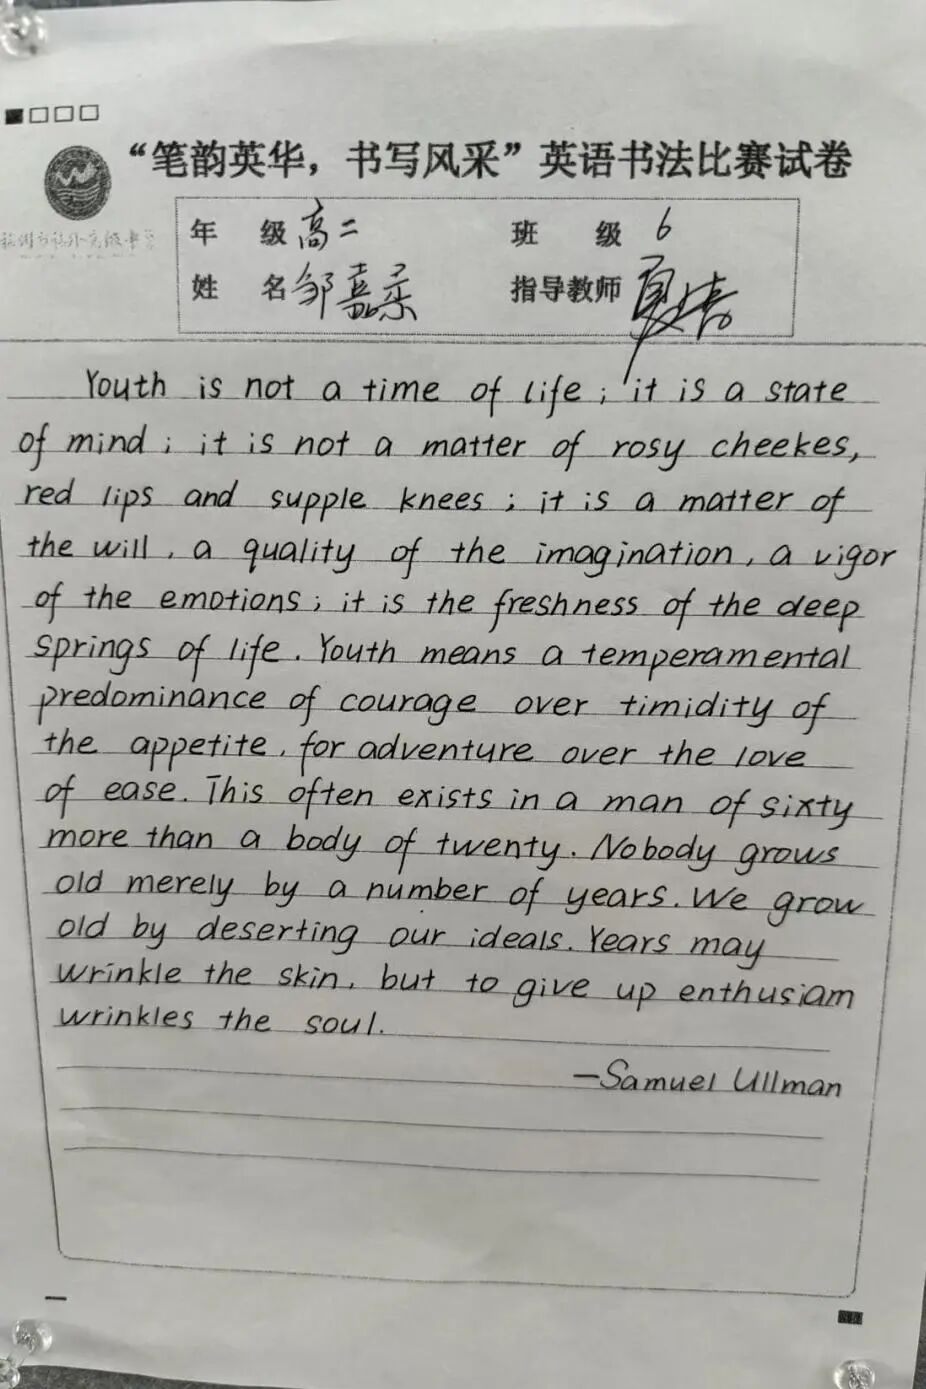 “笔韵英华，书写风采”英语书法比赛试卷
年 级 高二 班 级 6
姓 名 邹嘉柔 指导教师
Youth is not a time of life ; it is a state
of mind ; it is not a matter of rosy cheekes,
red lips and supple knees ; it is a matter of
the will , a quality of the imagination , a vigor
of the emotions ; it is the freshness of the deep
springs of life . Youth means a temperamental
predominance of courage over timidity of
the appetite , for adventure over the love
of ease. This often exists in a man of sixty
more than a body of twenty. Nobody grows
old merely by a number of years. We grow
old by deserting our ideals. Years may
wrinkle the skin , but to give up enthusiam
wrinkles the soul.
—Samuel Ullman